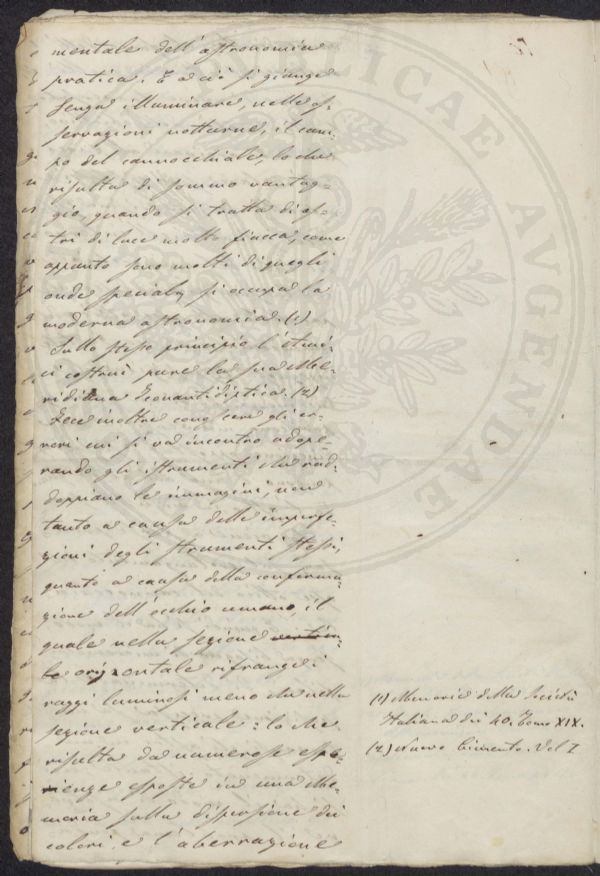 mentale dell'astronomia
pratica. E a ciò si giunge
senza illuminare, nelle os-
servazioni notturne, il cam-
po del cannocchiale, lo che
risulta di sommo vantag-
gio, quando si tratta di as-
tri di luce molto fiacca, come
appunto sono molti di quegli
onde specialm. si occupa la
moderna astronomia. (1)
Sullo stesso principio l'Amici
costruì pure la sua Me-
ridiana Iconantidiptica. (2)
Fece inoltre conoscere gli er-
rori cui si va incontro adope-
rando gli istrumenti che rad-
doppiano le immagini, non
tanto a causa delle imperfe-
zioni degli strumenti stessi,
quanto a causa della conforma-
zione dell'occhio umano, il
quale nella sezione
orizzontale rifrange i
raggi luminosi meno che nella
sezione verticale: lo che
risulta da numerose espe-
rienze esposte in una Me-
moria sulla dispersione dei
colori e l'aberrazione
(1) Memorie della Società
Italiana dei 40. Tomo XIX.
(2) Nuovo Cimento. Vol I
REI PVBLICAE AVGENDAE